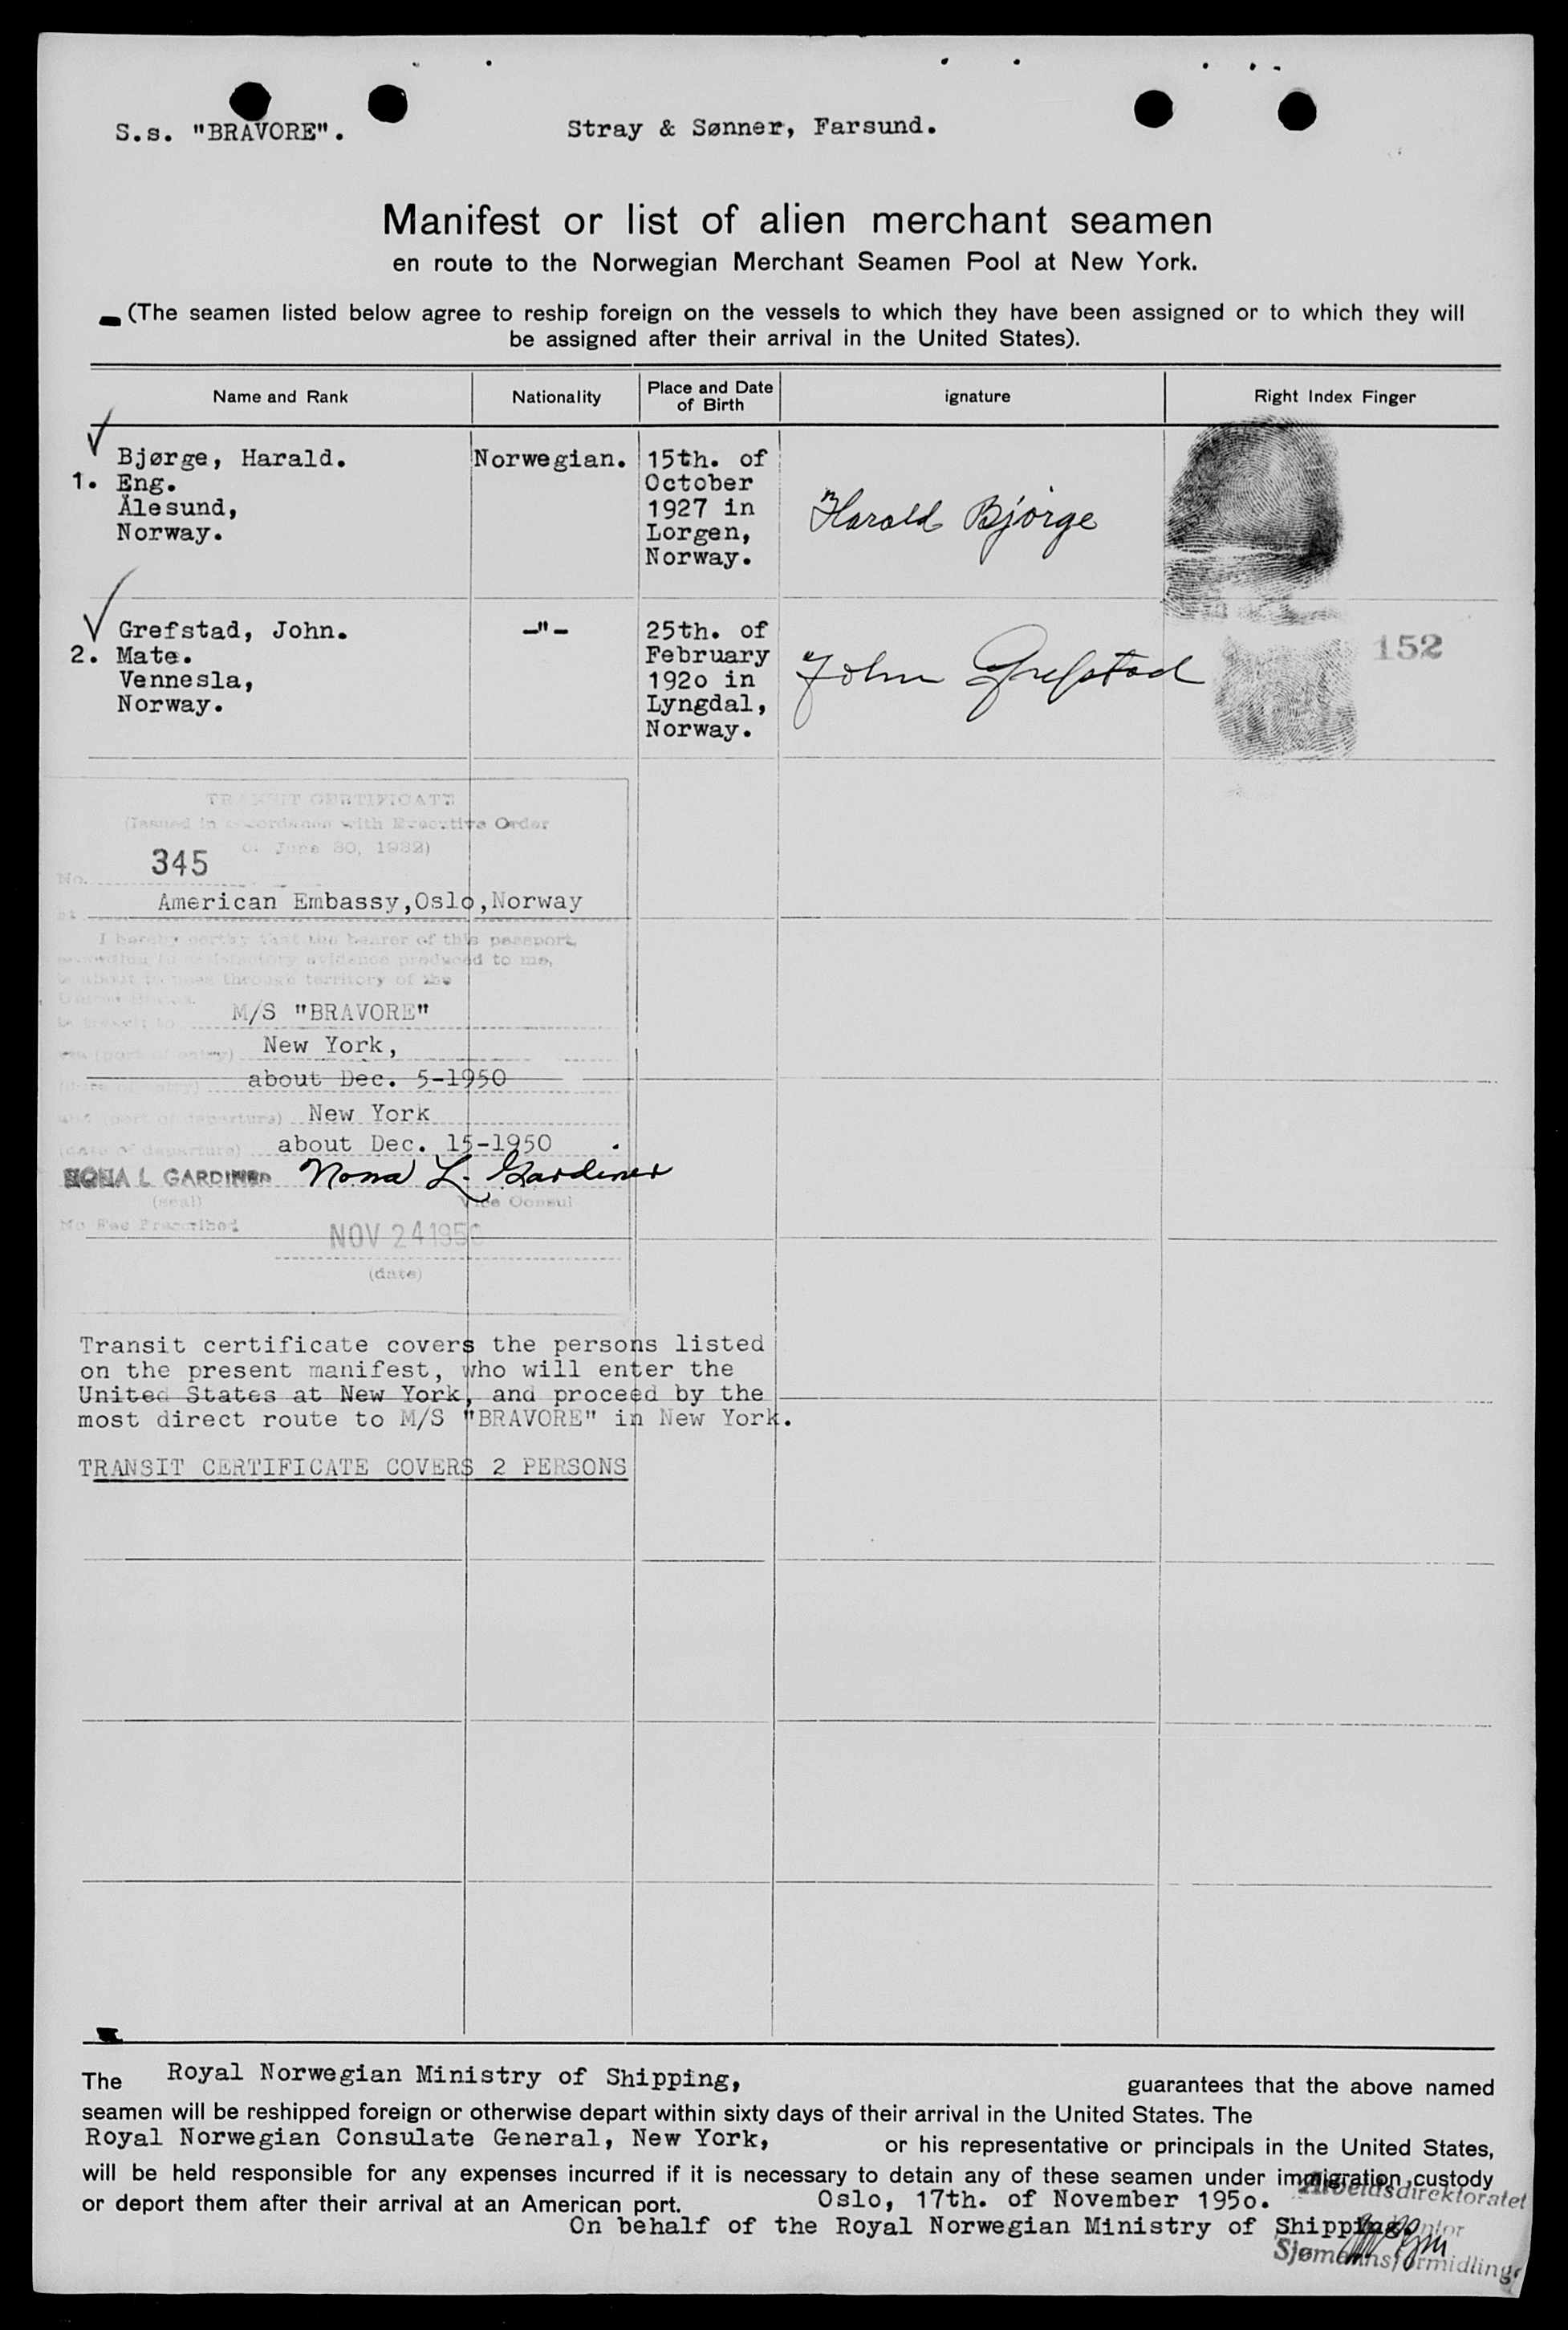 S.s. "BRAVORE".
Stray & Sønner, Farsund.
Manifest or list of alien merchant seamen
en route to the Norwegian Merchant Seamen Pool at New York.
(The seamen listed below agree to reship foreign on the vessels to which they have been assigned or to which they will
be assigned after their arrival in the United States).
Name and Rank Nationality Place and Date of Birth ignature Right Index Finger
Bjørge, Harald. Norwegian. 15th. of
1. Eng. October
Ålesund, 1927 in
Norway. Lorgen,
Norway.
Harald Bjørge
Grefstad, John. -"- 25th. of
2. Mate. February
Vennesla, 1920 in
Norway. Lyngdal,
Norway.
John Grefstad
152
TRANSIT CERTIFICATE
(Issued in accordance with Executive Order
of June 30, 1932)
No. 345
at American Embassy,Oslo,Norway
I hereby certify that the bearer of this passport,
according to satisfactory evidence produced to me,
is about to pass through territory of the
United States
in transit to M/S "BRAVORE"
via (port of entry) New York,
(date of entry) about Dec. 5-1950
and (port of departure) New York
(date of departure) about Dec. 15-1950
NONA L GARDINER Nona L. Gardiner
(seal) Vice Consul
No Fee Prescribed
NOV 24 1950
(date)
Transit certificate covers the persons listed
on the present manifest, who will enter the
United States at New York, and proceed by the
most direct route to M/S "BRAVORE" in New York.
TRANSIT CERTIFICATE COVERS 2 PERSONS
The Royal Norwegian Ministry of Shipping, guarantees that the above named
seamen will be reshipped foreign or otherwise depart within sixty days of their arrival in the United States. The
Royal Norwegian Consulate General, New York, or his representative or principals in the United States,
will be held responsible for any expenses incurred if it is necessary to detain any of these seamen under immigration custody
or deport them after their arrival at an American port. Oslo, 17th. of November 195o.
On behalf of the Royal Norwegian Ministry of Shipping.
Arbeidsdirektoratet
Sjømannsformidling